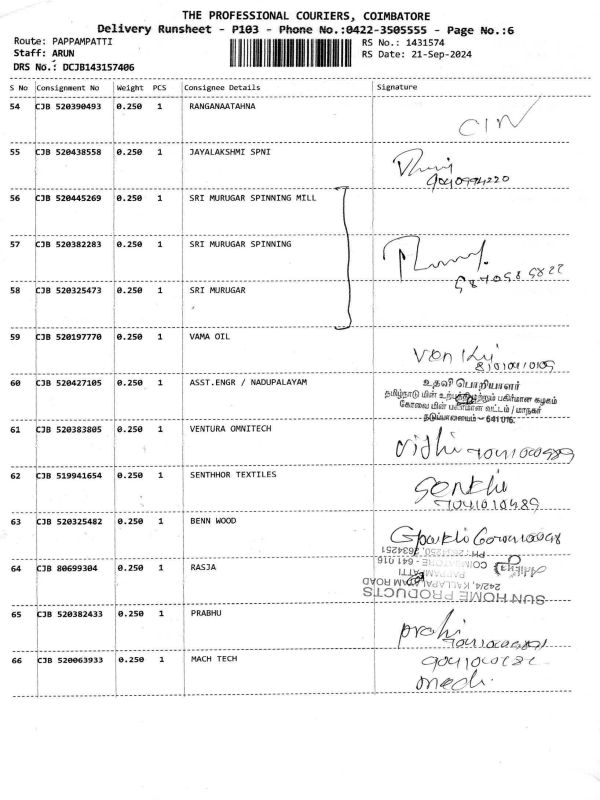 THE PROFESSIONAL COURIERS, COIMBATORE
Delivery Runsheet - P103 - Phone No.:0422-3505555 - Page No.:6
Route: PAPPAMPATTI RS No.: 1431574
Staff: ARUN RS Date: 21-Sep-2024
DRS No.: DCJB143157406
S No Consignment No Weight PCS Consignee Details Signature
54 CJB 520390493 0.250 1 RANGANAATAHNA
CIN
55 CJB 520438558 0.250 1 JAYALAKSHMI SPNI
56 CJB 520445269 0.250 1 SRI MURUGAR SPINNING MILL
57 CJB 520382283 0.250 1 SRI MURUGAR SPINNING
58 CJB 520325473 0.250 1 SRI MURUGAR
59 CJB 520197770 0.250 1 VAMA OIL
60 CJB 520427105 0.250 1 ASST.ENGR / NADUPALAYAM
உதவி பொறியாளர்
தமிழ்நாடு மின் உற்பத்தி மற்றும் பகிர்மான கழகம்
கோவை மின் பகிர்மான வட்டம் / மாநகர்
நடுப்பாளையம் - 641 016.
61 CJB 520383805 0.250 1 VENTURA OMNITECH
62 CJB 519941654 0.250 1 SENTHHOR TEXTILES
63 CJB 520325482 0.250 1 BENN WOOD
64 CJB 80699304 0.250 1 RASJA
COIMBATORE - 641 016
PAPPAMPATTI
242/4, KALLAPALAYAM ROAD
SUN HOME PRODUCTS
65 CJB 520382433 0.250 1 PRABHU
66 CJB 520063933 0.250 1 MACH TECH